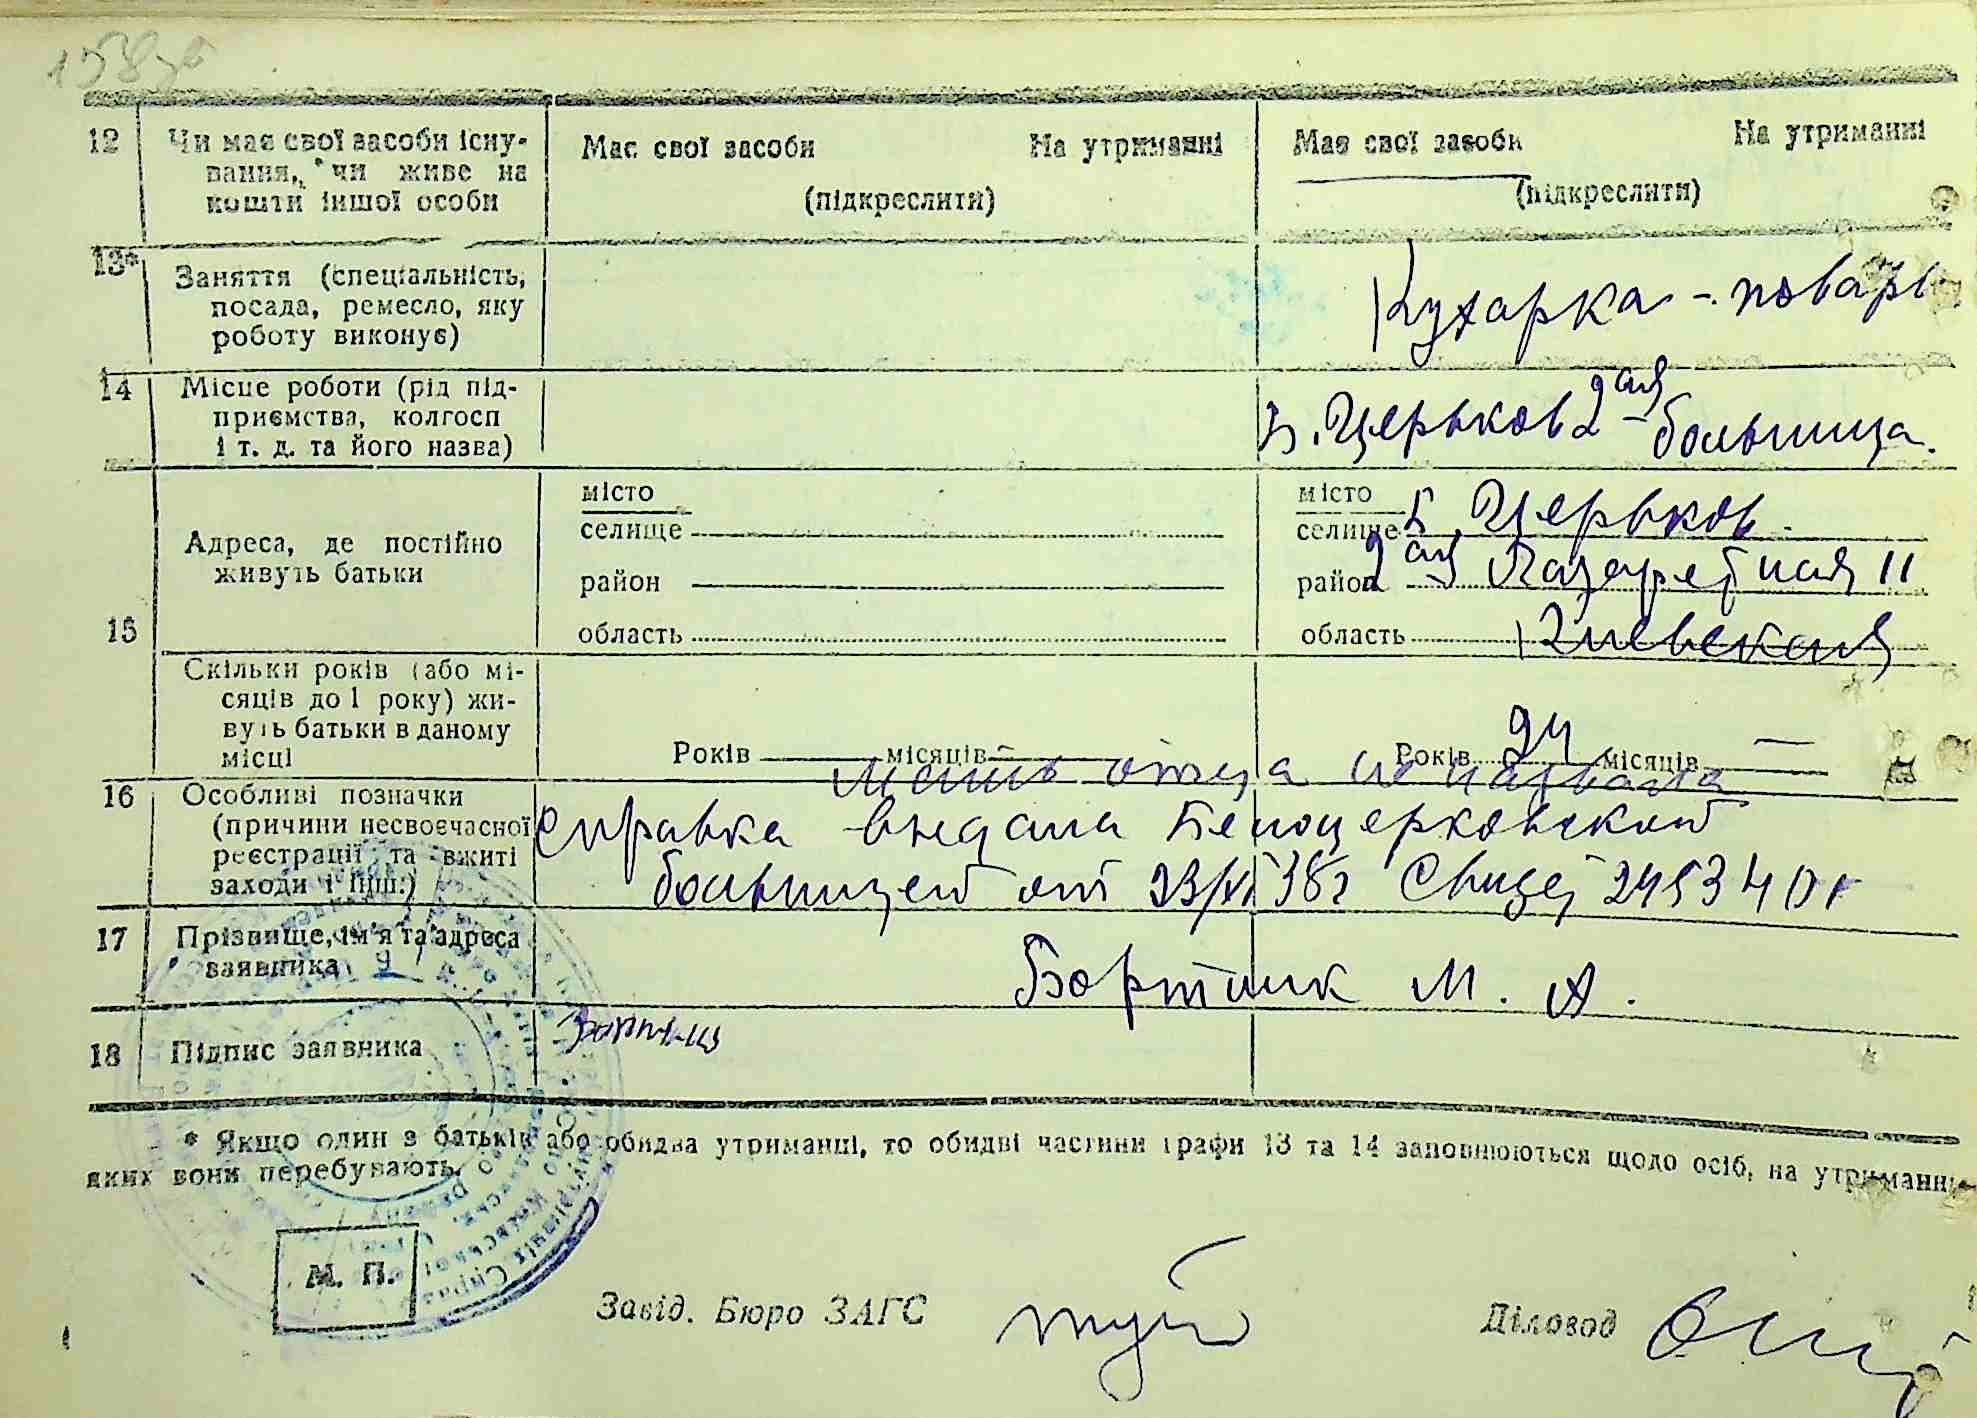 12 Чи має свої засоби існу-
вання, чи живе на
кошти іншої особи
Має свої засоби На утриманні
(підкреслити)
Має свої засоби На утриманні
(підкреслити)
13* Заняття (спеціальність,
посада, ремесло, яку
роботу виконує)
Кухарка - поварь
14 Місце роботи (рід під-
приємства, колгосп
і т. д. та його назва)
Б. Церьков 2ая больница.
15 Адреса, де постійно
живуть батьки
місто
селище
район
область
місто
селище Б. Церьков
район 2ая Лазаретная 11
область Киевская
Скільки років (або мі-
сяців до 1 року) жи-
вуть батьки в даному
місці
Років місяців —
Років 24 місяців —
16 Особливі позначки
(причини несвоєчасної
реєстрації та вжиті
заходи і інш.)
Мать отца не назвала
Справка видана Белоцерковской
больницей от 23/XI 38г
17 Прізвище, ім'я та адреса
заявника
Бортник М. А.
18 Підпис заявника
* Якщо один з батьків або обидва утриманці, то обидві частини графи 13 та 14 заповнюються щодо осіб, на утриманні
яких вони перебувають.
М. П.
Завід. Бюро ЗАГС
Діловод